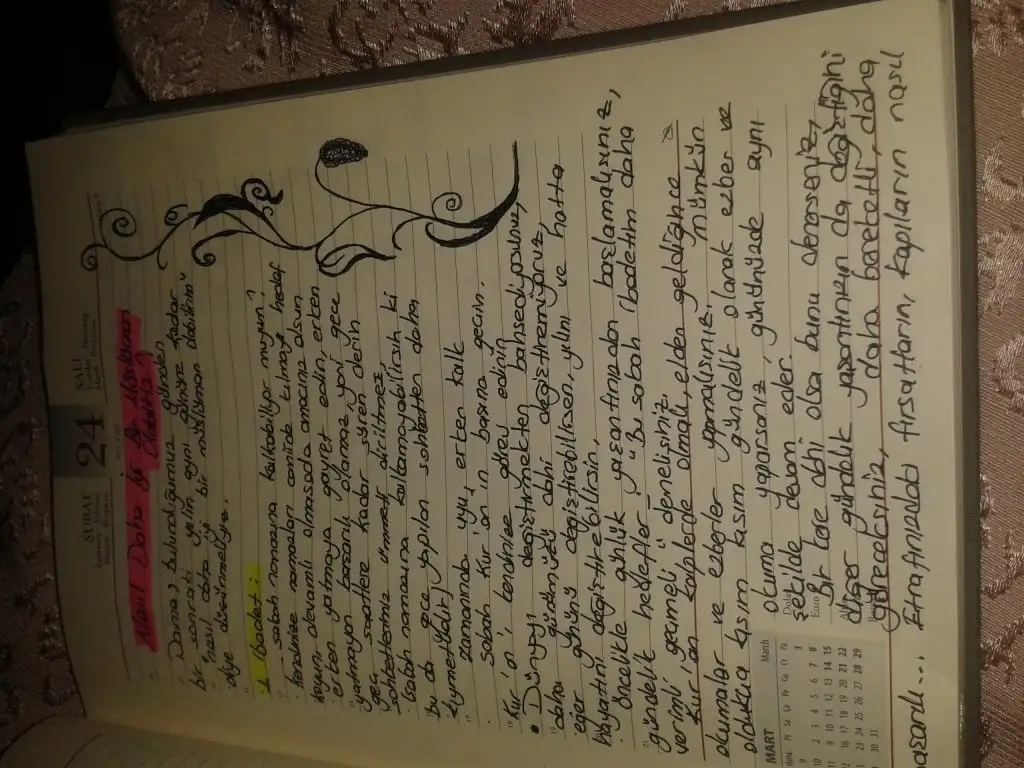 24
ŞUBAT
SALI
Nasıl Daha İyi Bir Müslüman
Olabiliriz?
Daima, bulunduğumuz günden
bir sonraki yılın aynı gününe kadar
"nasıl daha iyi bir müslüman olabilirim"
diye düşünmeliyiz.
1. İbadet:
sabah namazına kalkabiliyor muyum?
kendinize namazları camide kılmayı hedef
koyun devamlı olmasada amacınız olsun
erken yatmaya gayret edin, erken
yatmayan başarılı olamaz, yani gece
geç saatlere kadar süren derin
sohbetlerimiz ümmeti diriltmez
(sabah namazına kalkamayabilirsin ki
bu da gece yapılan sohbetten daha
kıymetlidir)
zamanında uyu, erken kalk
sabah Kur'an'ın başına geçin.
Kur'an'ı kendinize görev edinin
• Dünyayı değiştirmekten bahsediyoruz,
ama günümüzü dahi değiştiremiyoruz,
eğer gününü değiştirebilirsen, yılını ve hatta
hayatını değiştirebilirsin,
Öncelikle günlük yaşantınızdan başlamalısınız,
gündelik hedefler "Bu sabah ibadetim daha
verimli geçmeli" demelisiniz.
Kur'an kalplerde olmalı, elden geldiğince
okumalar ve ezberler yapmalısınız. mümkün
oldukça kısım kısım gündelik olarak ezber ve
okuma yaparsanız, gününüzde aynı
şekilde devam eder.
Bir kere dahi olsa bunu denerseniz,
diğer gündelik yaşantınızın da değiştiğini
göreceksiniz, daha bereketli, daha
başarılı... Etrafınızdaki fırsatların, kapıların nasıl
MART
March
Pt Sa Ça Pe Cu Ct Pa